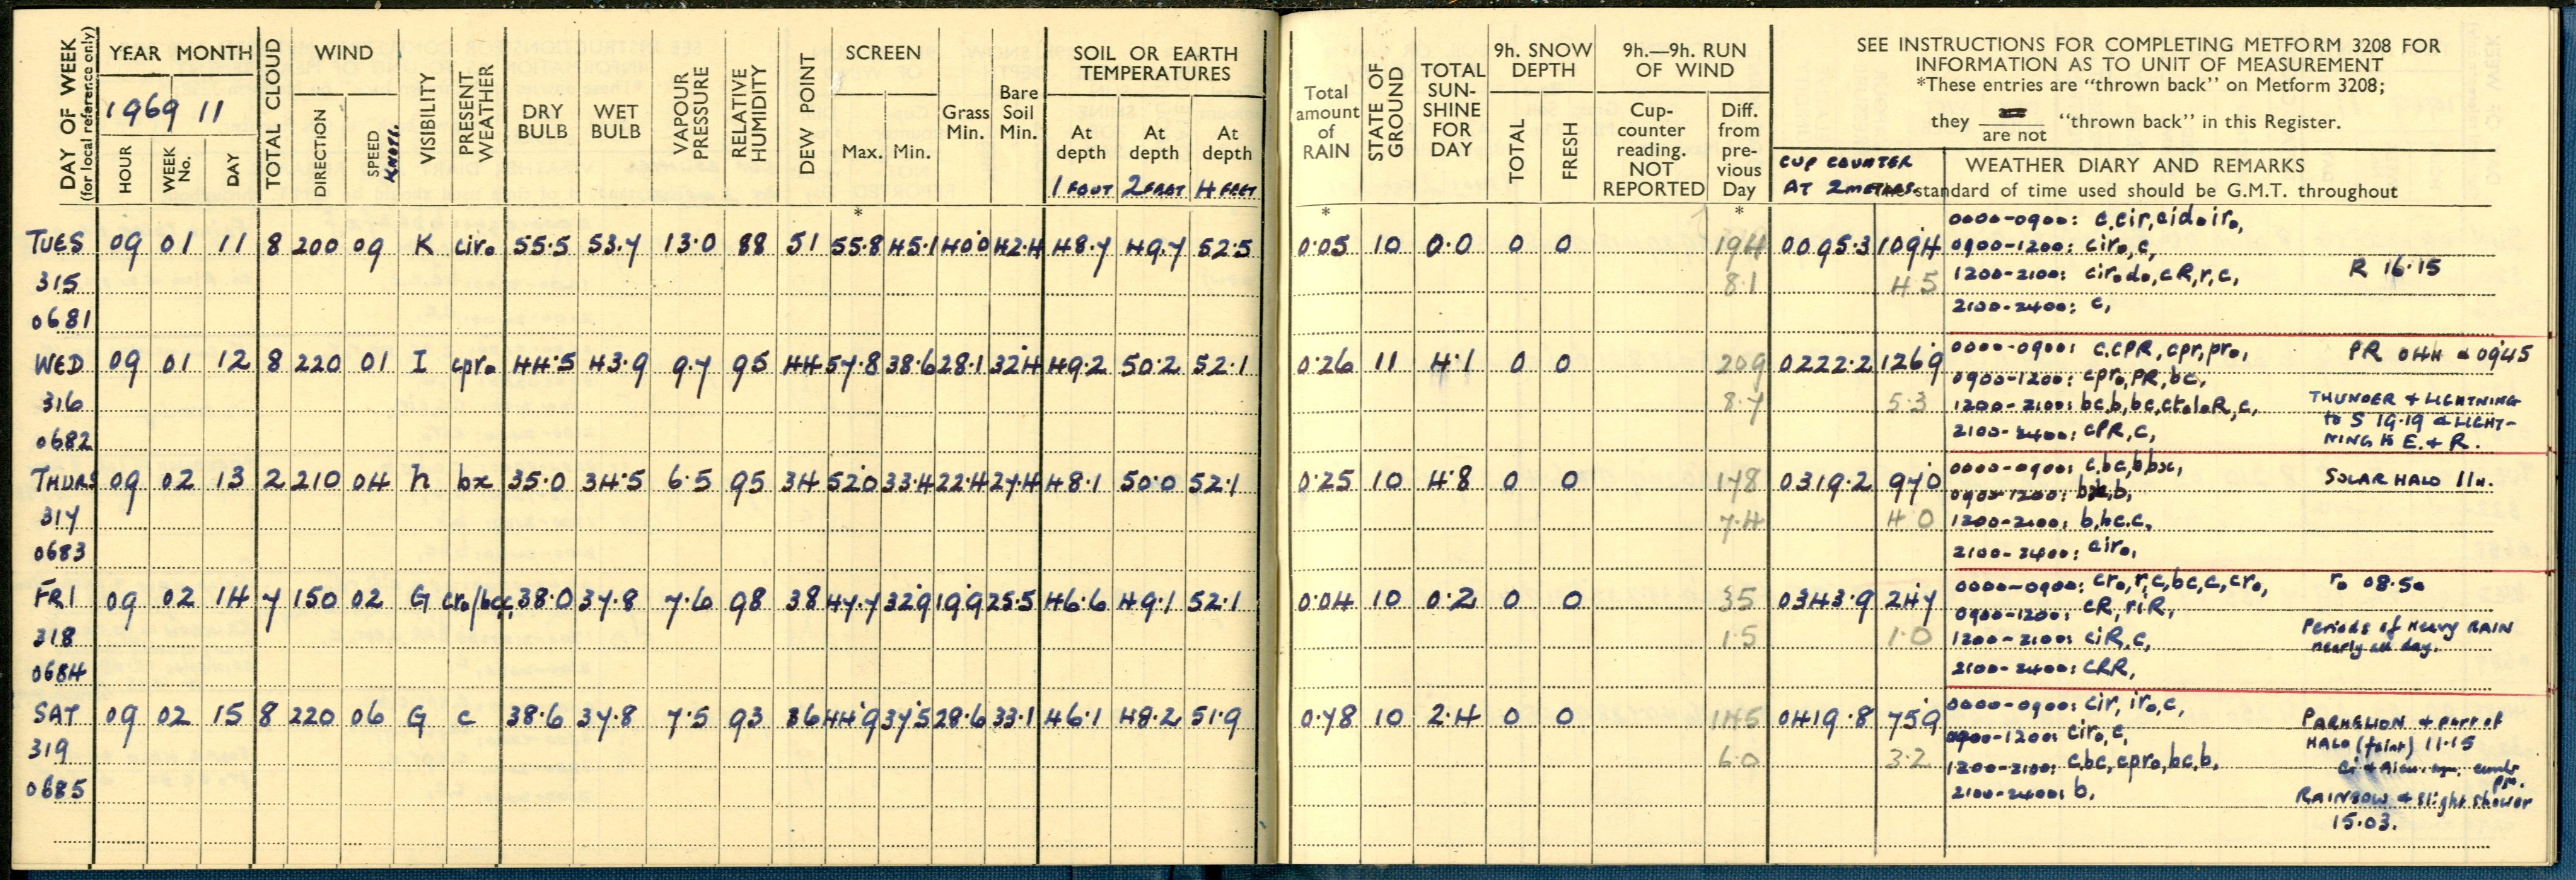 DAY OF WEEK (for local reference only)
YEAR MONTH
1969 11
HOUR WEEK No. DAY
TOTAL CLOUD
WIND
DIRECTION SPEED KNOTS.
VISIBILITY
PRESENT WEATHER
DRY BULB WET BULB
VAPOUR PRESSURE
RELATIVE HUMIDITY
DEW POINT
SCREEN
Max. Min.
Grass Min.
Bare Soil Min.
SOIL OR EARTH TEMPERATURES
At depth At depth At depth
1 FOOT 2 FEET 4 FEET
Total amount of RAIN
STATE OF GROUND
TOTAL SUN-SHINE FOR DAY
9h. SNOW DEPTH
TOTAL FRESH
9h.—9h. RUN OF WIND
Cup-counter reading. NOT REPORTED
Diff. from pre-vious Day
SEE INSTRUCTIONS FOR COMPLETING METFORM 3208 FOR
INFORMATION AS TO UNIT OF MEASUREMENT
*These entries are "thrown back" on Metform 3208;
they are not "thrown back" in this Register.
CUP COUNTER
AT 2 METRES.
WEATHER DIARY AND REMARKS
The standard of time used should be G.M.T. throughout
* * *
TUES 09 01 11 8 200 09 K ciro 55.5 53.7 13.0 88 51 55.8 45.1 40.0 42.4 48.7 49.7 52.5 0.05 10 0.0 0 0 194 0095.3 1094
315 8.1 4.5
0681
0000-0900: c,cir,cidoiro,
0900-1200: ciro,c,
1200-2100: cirodo,cR,r,c, R 16.15
2100-2400: c,
WED 09 01 12 8 220 01 I cpro 44.5 43.9 9.7 95 44 57.8 38.6 28.1 32.4 49.2 50.2 52.1 0.26 11 4.1 0 0 209 0222.2 1269
316 8.7 5.3
0682
0000-0900: c,cPR,cpr,pro, PR 044 & 0945
0900-1200: cpro,PR,bc,
1200-2100: bc,b,bc,ctoloR,c, THUNDER & LIGHTNING
to S 19.19 & LIGHT-
2100-2400: cPR,c, NING to E. & R.
THURS 09 02 13 2 210 04 h bx 35.0 34.5 6.5 95 34 52.0 33.4 22.4 27.4 48.1 50.0 52.1 0.25 10 4.8 0 0 178 0319.2 970
317 7.4 4.0
0683
0000-0900: c,bc,b,bx, SOLAR HALO 11h.
0900-1200: b,
1200-2100: b,bc,c,
2100-2400: ciro,
FRI 09 02 14 7 150 02 G cro/bcc, 38.0 37.8 7.6 98 38 47.7 32.9 19.9 25.5 46.6 49.1 52.1 0.04 10 0.2 0 0 35 0343.9 247
318 1.5 1.0
0684
0000-0900: cro,r,c,bc,c,cro, ro 08.50
0900-1200: cR, riR,
1200-2100: ciR,c, Periods of Heavy RAIN
nearly all day.
2100-2400: cRR,
SAT 09 02 15 8 220 06 G c 38.6 37.8 7.5 93 36 44.9 37.5 28.6 33.1 46.1 48.2 51.9 0.78 10 2.4 0 0 145 0419.8 759
319 6.0 3.2
0685
0000-0900: cir, iro,c, PARHELION & part of
0900-1200: ciro,c, HALO (faint) 11.15
1200-2100: c,bc,cpro,bc,b, Ci &
2100-2400: b, RAINBOW & slight shower
15.03.